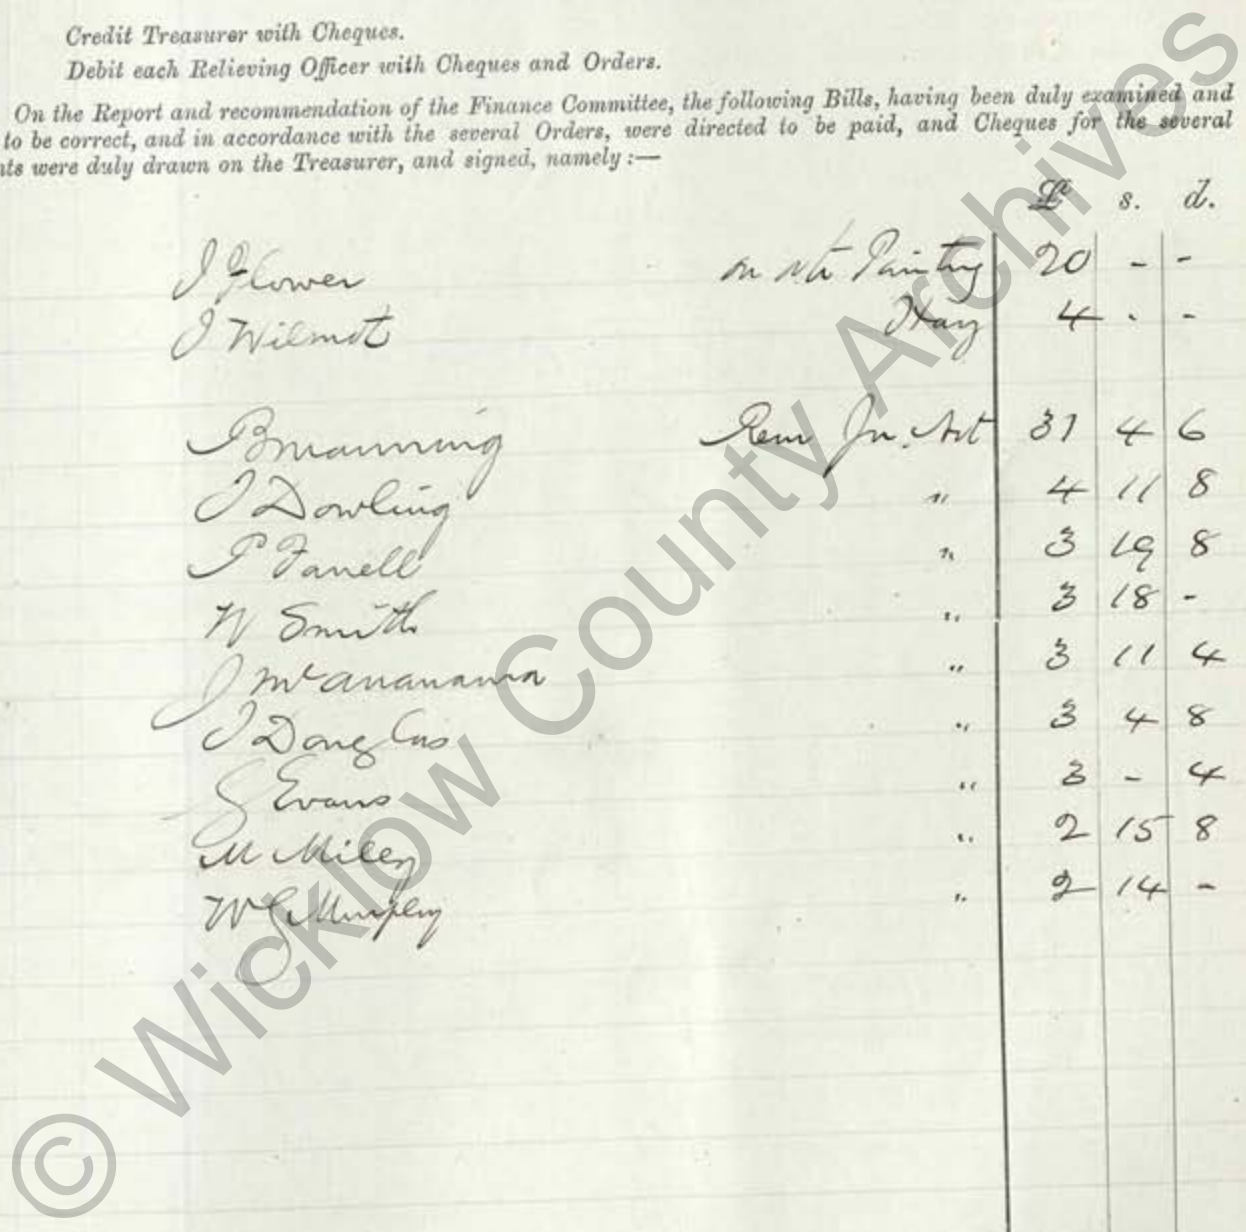 Credit Treasurer with Cheques.
Debit each Relieving Officer with Cheques and Orders.
On the Report and recommendation of the Finance Committee, the following Bills, having been duly examined and
to be correct, and in accordance with the several Orders, were directed to be paid, and Cheques for the several
nts were duly drawn on the Treasurer, and signed, namely :—
£ s. d.
J Flower on Painting 20 - -
J Wilmot Hay 4 - -
B Manning 31 4 6
J Dowling " 4 11 8
P Farrell " 3 19 8
W Smith " 3 18 -
J " 3 11 4
J Douglas " 3 4 8
G Evans " 3 - 4
M Miley " 2 15 8
W G Murphy " 2 14 -
© Wicklow County Archives